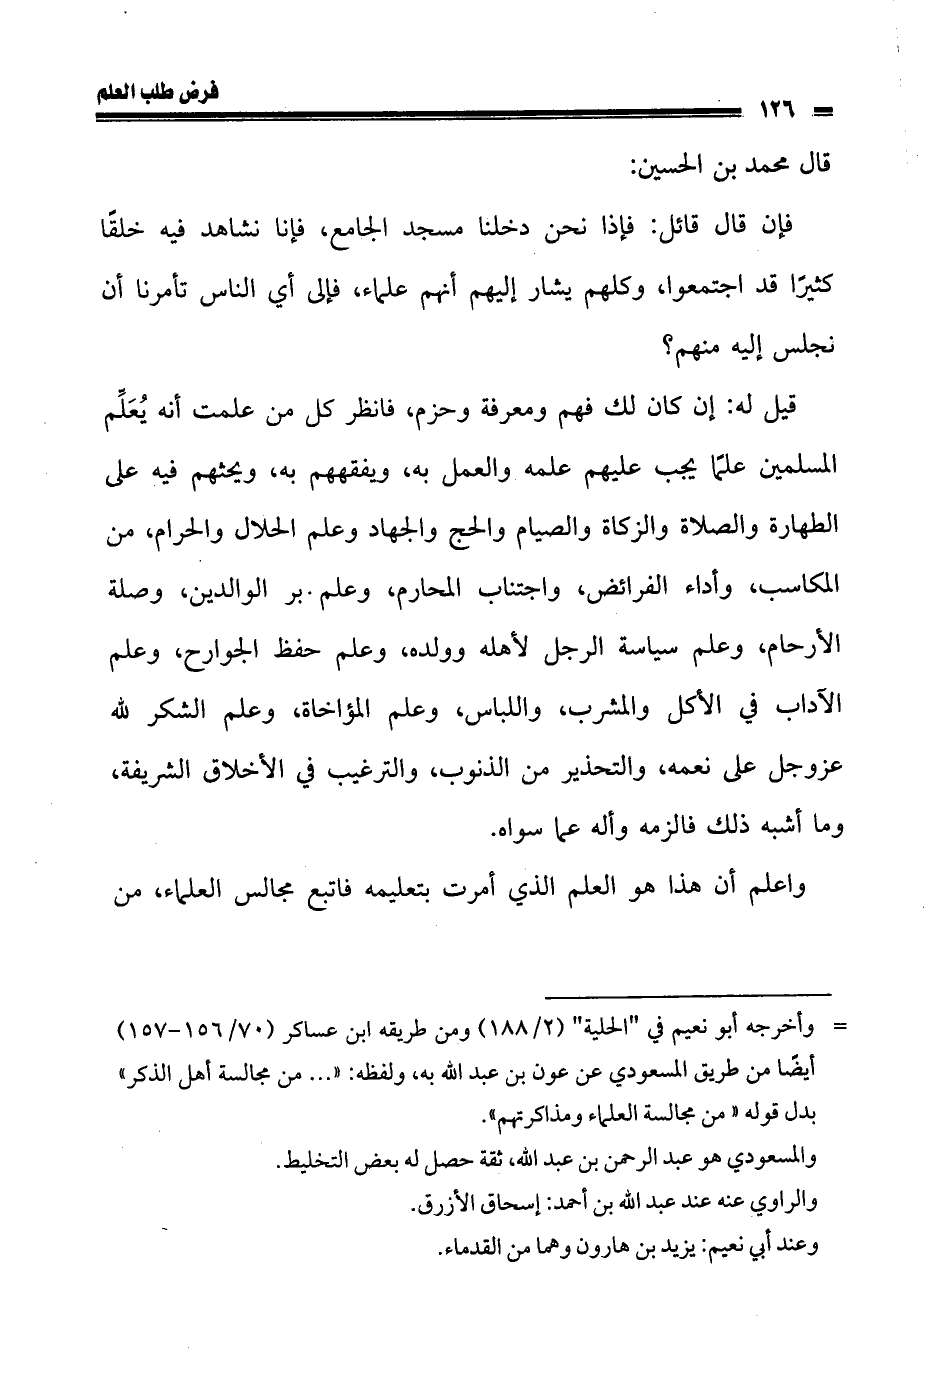 فرض طلب العلم
١٢٦
قال محمد بن الحسين:
فإن قال قائل: فإذا نحن دخلنا مسجد الجامع، فإنا نشاهد فيه خلقًا
كثيرًا قد اجتمعوا، وكلهم يشار إليهم أنهم علماء، فإلى أي الناس تأمرنا أن
نجلس إليه منهم؟
قيل له: إن كان لك فهم ومعرفة وحزم، فانظر كل من علمت أنه يُعَلِّم
المسلمين علمًا يجب عليهم علمه والعمل به، ويفقههم به، ويحثهم فيه على
الطهارة والصلاة والزكاة والصيام والحج والجهاد وعلم الحلال والحرام، من
المكاسب، وأداء الفرائض، واجتناب المحارم، وعلم بر الوالدين، وصلة
الأرحام، وعلم سياسة الرجل لأهله وولده، وعلم حفظ الجوارح، وعلم
الآداب في الأكل والمشرب، واللباس، وعلم المؤاخاة، وعلم الشكر لله
عزوجل على نعمه، والتحذير من الذنوب، والترغيب في الأخلاق الشريفة،
وما أشبه ذلك فالزمه وأله عما سواه.
واعلم أن هذا هو العلم الذي أمرت بتعليمه فاتبع مجالس العلماء، من
= وأخرجه أبو نعيم في "الحلية" (٢/ ١٨٨) ومن طريقه ابن عساكر (٧٠/ ١٥٦-١٥٧)
أيضًا من طريق المسعودي عن عون بن عبد الله به، ولفظه: «... من مجالسة أهل الذكر»
بدل قوله « من مجالسة العلماء ومذاكرتهم».
والمسعودي هو عبد الرحمن بن عبد الله، ثقة حصل له بعض التخليط.
والراوي عنه عند عبد الله بن أحمد: إسحاق الأزرق.
وعند أبي نعيم: يزيد بن هارون وهما من القدماء.